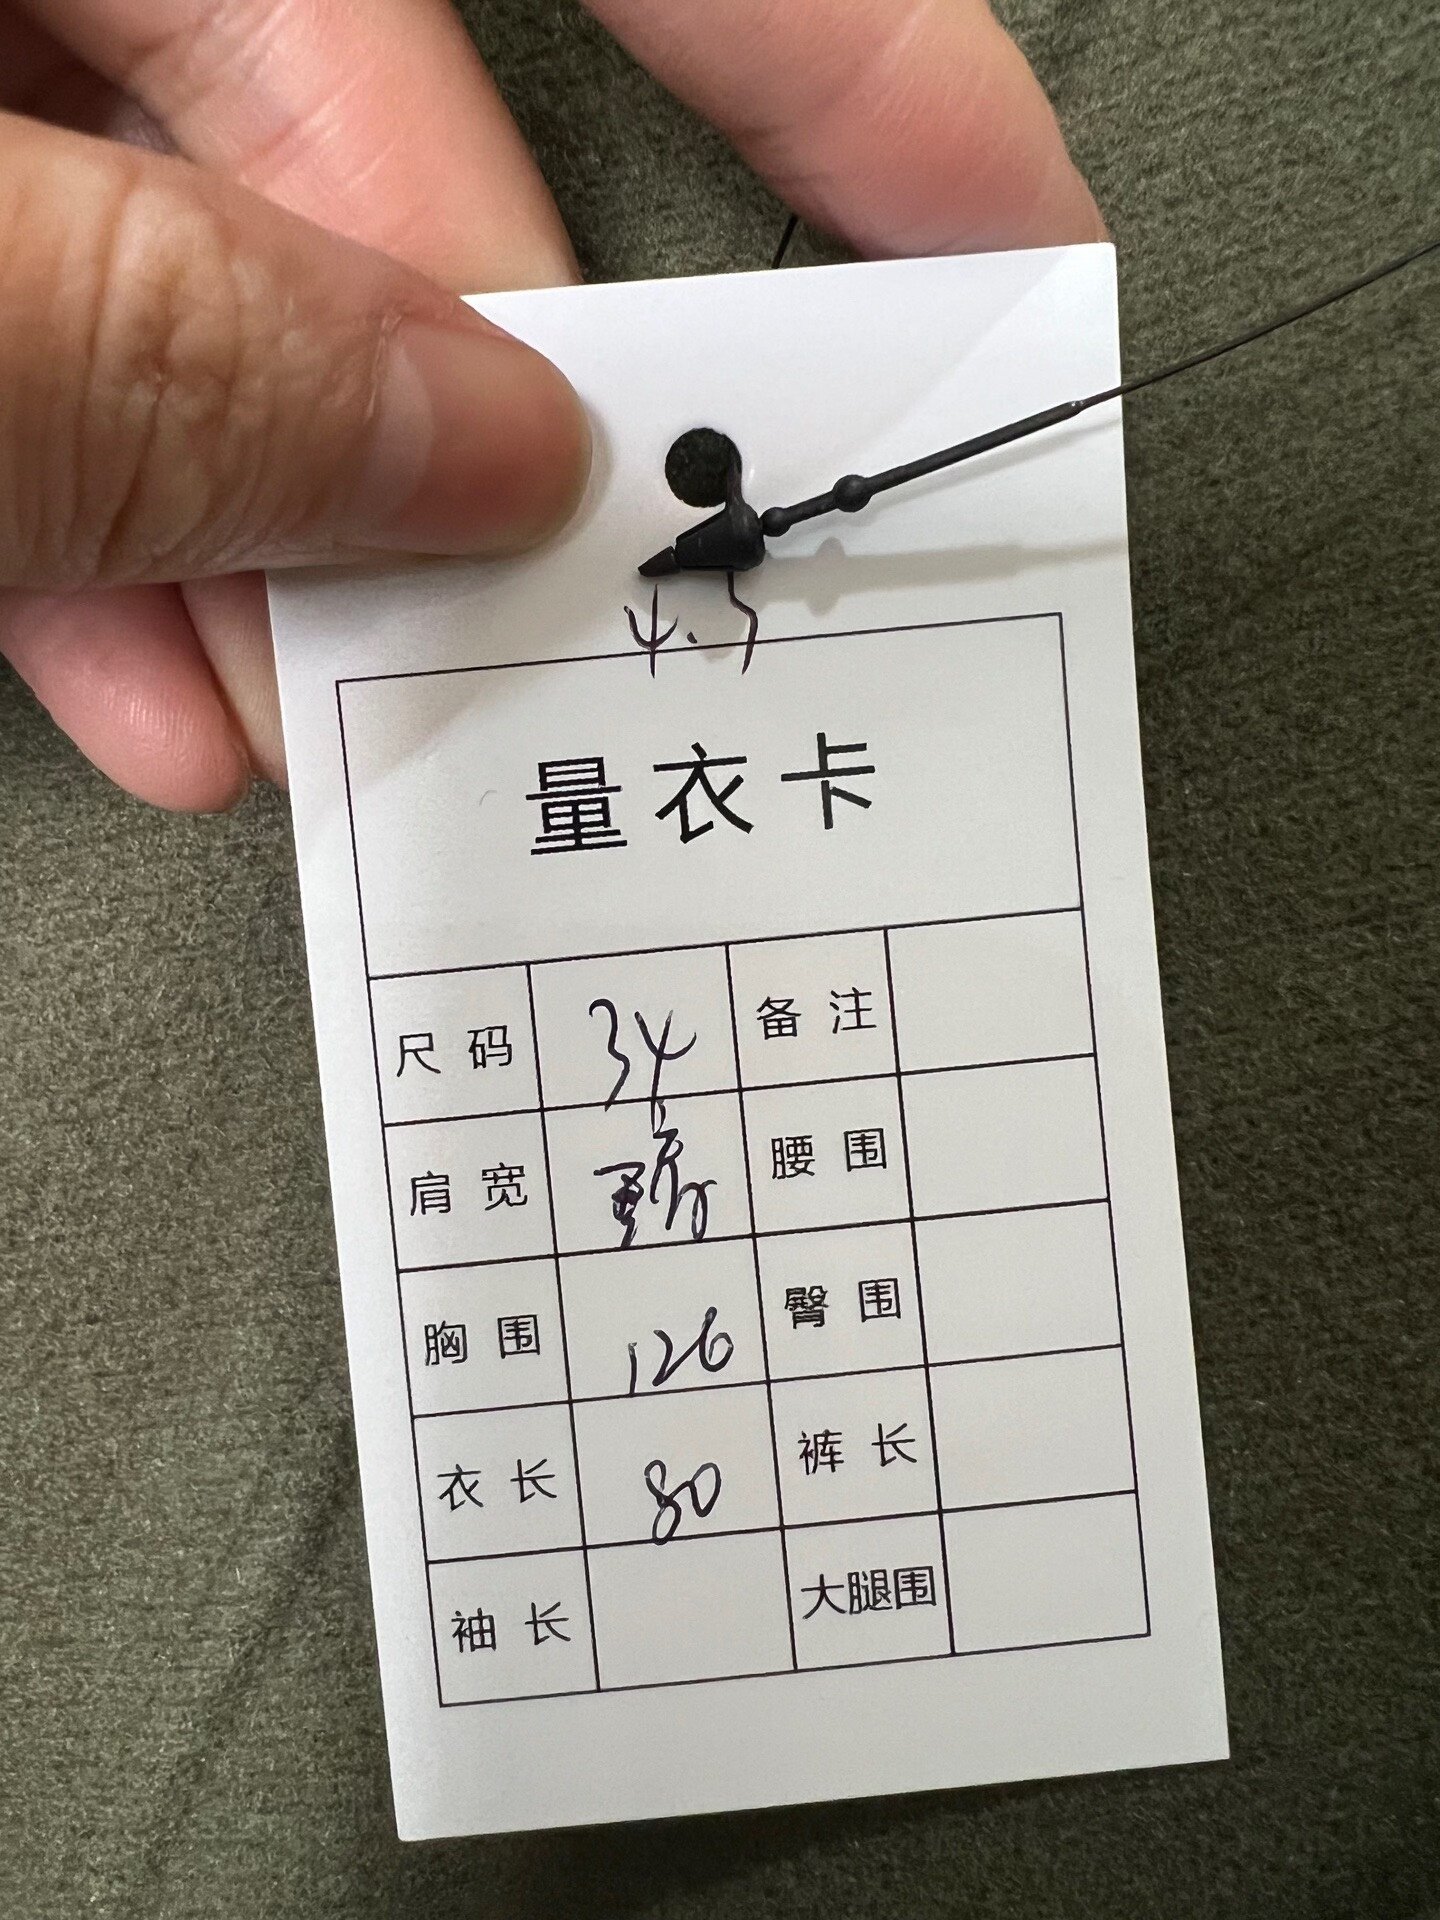 4.3
量衣卡
尺码 34 备注
肩宽 腰围
胸围 126 臀围
衣长 80 裤长
袖长 大腿围